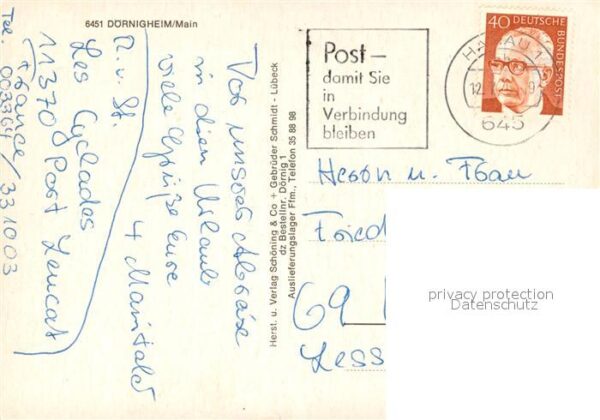 6451 DÖRNIGHEIM/Main
Vor unserer Abreise
in dien Urlaub
viele Grüße Eure
4
N. v. St.
Les Cyclades
11370 Port Leucat
France
Tel. 003364/331003
Herst. u. Verlag Schöning & Co + Gebrüder Schmidt - Lübeck
dz Bestellnr. Dörnig 1
Auslieferungslager Ffm., Telefon 35 88 98
Post –
damit Sie
in
Verbindung
bleiben
HANAU 1
12.
645
40 DEUTSCHE
BUNDESPOST
Herrn u. Frau
Fried
69
Less
privacy protection
Datenschutz